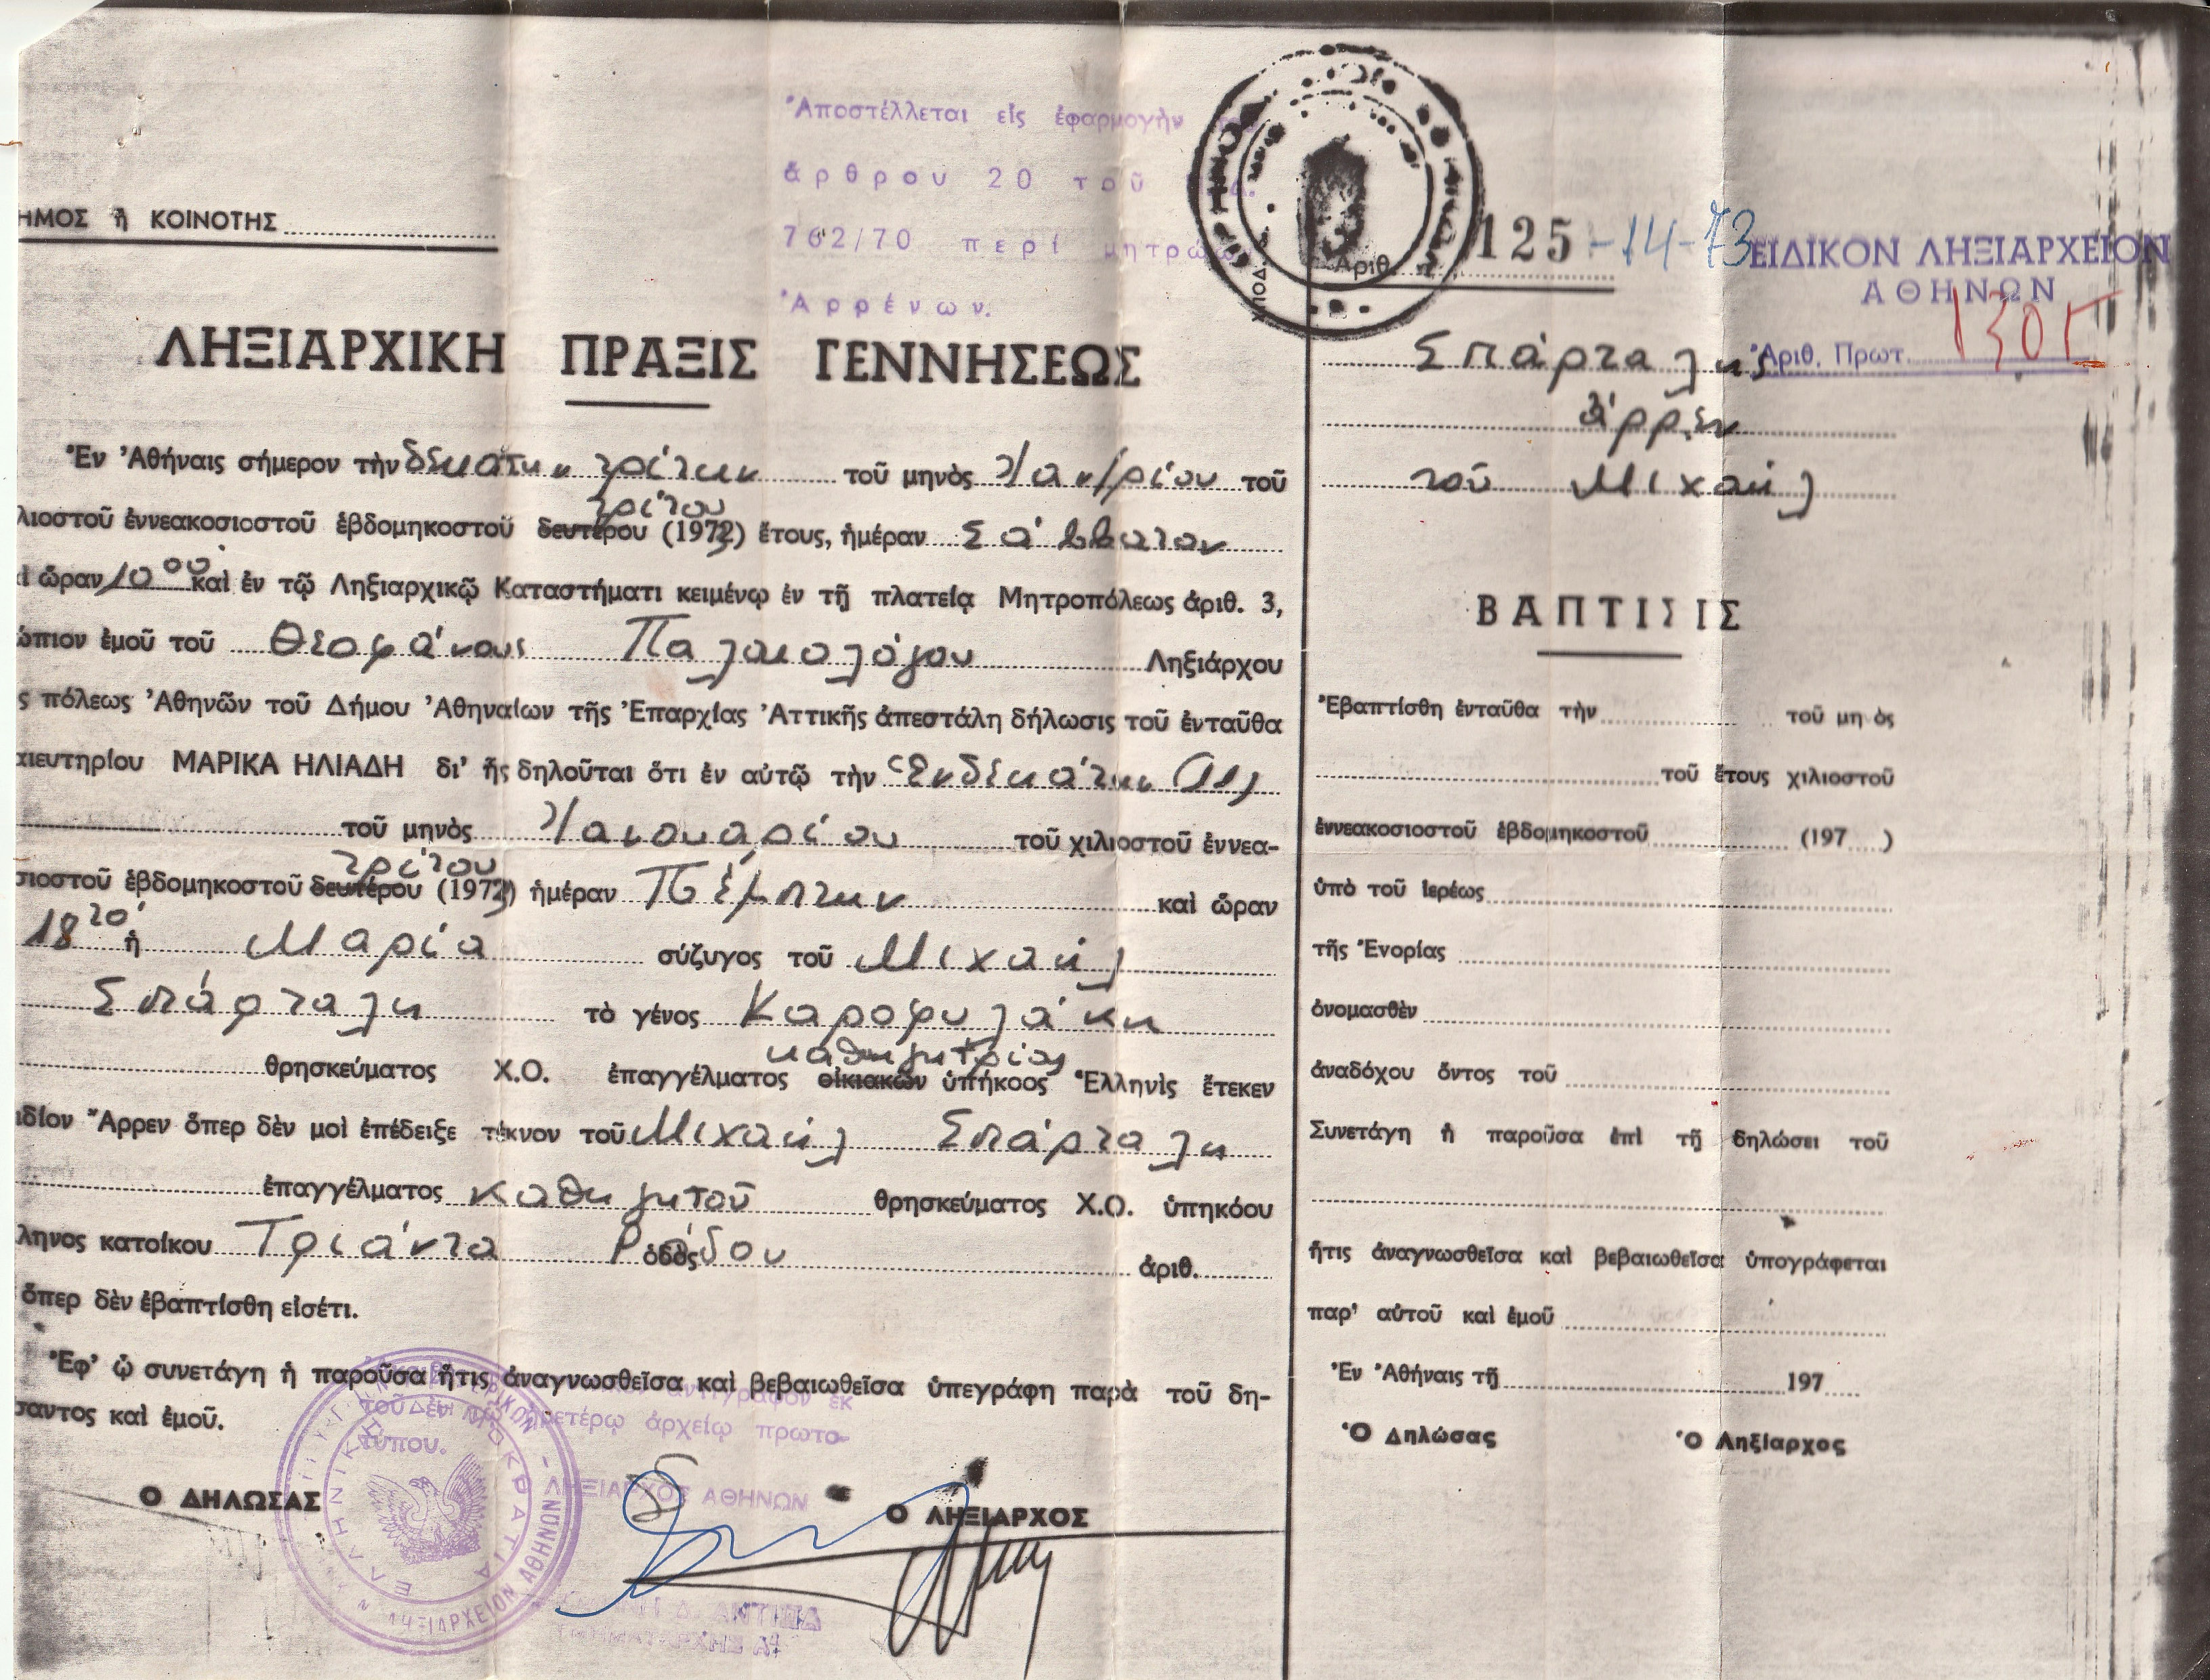 Ἀποστέλλεται εἰς ἐφαρμογὴν
ἄρθρου 20 τοῦ
762/70 περί μητρώων
Ἀρρένων.
ΗΜΟΣ ἢ ΚΟΙΝΟΤΗΣ
ΛΗΞΙΑΡΧΙΚΗ ΠΡΑΞΙΣ ΓΕΝΝΗΣΕΩΣ
Ἐν Ἀθήναις σήμερον τὴν δεκάτην τρίτην τοῦ μηνὸς Ἰαν/ρίου τοῦ
τρίτου
λιοστοῦ ἐννεακοσιοστοῦ ἑβδομηκοστοῦ δευτέρου (1973) ἔτους, ἡμέραν Σάββατον
ὥραν 10 00 καὶ ἐν τῷ Ληξιαρχικῷ Καταστήματι κειμένῳ ἐν τῇ πλατείᾳ Μητροπόλεως ἀριθ. 3,
ώπιον ἐμοῦ τοῦ Θεοφάνους Παλαιολόγου Ληξιάρχου
ς πόλεως Ἀθηνῶν τοῦ Δήμου Ἀθηναίων τῆς Ἐπαρχίας Ἀττικῆς ἀπεστάλη δήλωσις τοῦ ἐνταῦθα
αιευτηρίου ΜΑΡΙΚΑ ΗΛΙΑΔΗ δι' ἧς δηλοῦται ὅτι ἐν αὐτῷ τὴν Ἑνδεκάτην (11)
τοῦ μηνὸς Ἰανουαρίου τοῦ χιλιοστοῦ ἐννεα-
τρίτου
σιοστοῦ ἑβδομηκοστοῦ δευτέρου (1973) ἡμέραν Πέμπτην καὶ ὥραν
18 20' ἡ Μαρία σύζυγος τοῦ Μιχαήλ
Σπάρταλη τὸ γένος Καροφυλάκη
καθηγητρίας
θρησκεύματος Χ.Ο. ἐπαγγέλματος οἰκιακῶν ὑπήκοος Ἑλληνὶς ἔτεκεν
ιδίον Ἄρρεν ὅπερ δὲν μοὶ ἐπέδειξε τέκνον τοῦ Μιχαήλ Σπάρταλη
ἐπαγγέλματος καθηγητοῦ θρησκεύματος Χ.Ο. ὑπηκόου
ληνος κατοίκου Τριάντα Ρόδου ὁδὸς ἀριθ.
ὅπερ δὲν ἐβαπτίσθη εἰσέτι.
Ἐφ' ᾧ συνετάγη ἡ παροῦσα ἥτις ἀναγνωσθεῖσα καὶ βεβαιωθεῖσα ὑπεγράφη παρὰ τοῦ δη-
σαντος καὶ ἐμοῦ.
ἀντίγραφον ἐκ
τοῦ ἐν τῷ ἡμετέρῳ ἀρχείῳ πρωτο-
τύπου.
ΛΗΞΙΑΡΧΟΣ ΑΘΗΝΩΝ
Ο ΔΗΛΩΣΑΣ
Ο ΛΗΞΙΑΡΧΟΣ
ΕΛΛΗΝΙΚΗ ΔΗΜΟΚΡΑΤΙΑ
ΛΗΞΙΑΡΧΕΙΟΝ ΑΘΗΝΩΝ
Δ. ΑΝΤΥΠΑ
Ἀριθ. 125 -14-73
ΕΙΔΙΚΟΝ ΛΗΞΙΑΡΧΕΙΟΝ
ΑΘΗΝΩΝ
Ἀριθ. Πρωτ. 1305
Σπάρταλης
ἄρρεν
τοῦ Μιχαήλ
ΒΑΠΤΙΣΙΣ
Ἐβαπτίσθη ἐνταῦθα τὴν τοῦ μη ὸς
τοῦ ἔτους χιλιοστοῦ
ἐννεακοσιοστοῦ ἑβδομηκοστοῦ (197 )
ὑπὸ τοῦ Ἱερέως
τῆς Ἐνορίας
ὀνομασθὲν
ἀναδόχου ὄντος τοῦ
Συνετάγη ἡ παροῦσα ἐπὶ τῇ δηλώσει τοῦ
ἥτις ἀναγνωσθεῖσα καὶ βεβαιωθεῖσα ὑπογράφεται
παρ' αὐτοῦ καὶ ἐμοῦ
Ἐν Ἀθήναις τῇ 197
Ὁ Δηλώσας Ὁ Ληξίαρχος